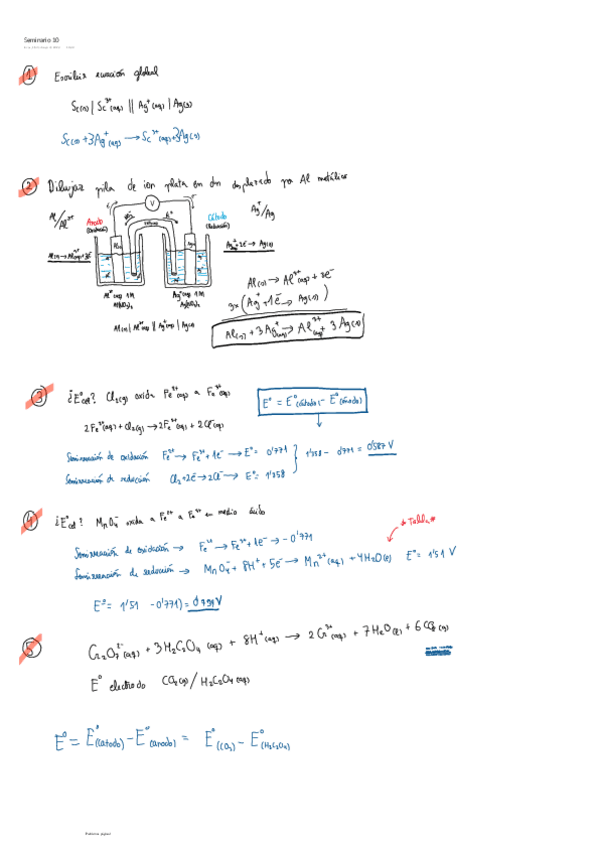 Seminario 10
① Escribir ecuación global
Sc(s) | Sc³⁺(aq) || Ag⁺(aq) | Ag(s)
Sc(s) + 3Ag⁺(aq) → Sc³⁺(aq) + 3Ag(s)
② Dibujar pila de ion plata en dn desplazado por Al metálico
Al/Al³⁺
Ánodo
(Oxidación)
V
Cátodo
(Reducción)
Ag⁺/Ag
Al(s) → Al³⁺(aq) + 3e⁻
Al³⁺(aq) 1M
Ag⁺(aq) 1M
Al(s) | Al³⁺(aq) || Ag⁺(aq) | Ag(s)
Al(s) → Al³⁺(aq) + 3e⁻
3x (Ag⁺ + 1e⁻ → Ag(s))
Al(s) + 3Ag⁺(aq) → Al³⁺(aq) + 3Ag(s)
③ ¿E°cel? Cl₂(g) oxida Fe²⁺(aq) a Fe³⁺(aq)
E° = E°(cátodo) - E°(ánodo)
2Fe²⁺(aq) + Cl₂(g) → 2Fe³⁺(aq) + 2Cl⁻(aq)
Semireacción de oxidación Fe²⁺ → Fe³⁺ + 1e⁻ → E° = 0'771
1'358 - 0'771 = 0'587 V
Semireacción de reducción Cl₂ + 2e⁻ → 2Cl⁻ → E° = 1'358
④ ¿E°cel? MnO₄⁻ oxida a Fe²⁺ a Fe³⁺ en medio ácido
* Tabla *
Semireacción de oxidación → Fe²⁺ → Fe³⁺ + 1e⁻ → -0'771
Semireacción de reducción → MnO₄⁻ + 8H⁺ + 5e⁻ → Mn²⁺(aq) + 4H₂O(l) E° = 1'51 V
E° = 1'51 - 0'771) = 0'739 V
⑤ Cr₂O₇²⁻(aq) + 3H₂C₂O₄ (aq) + 8H⁺(aq) → 2Cr³⁺(aq) + 7H₂O(l) + 6CO₂(g)
E° electrodo CO₂(g) / H₂C₂O₄(aq)
E° = E°(cátodo) - E°(ánodo) = E°(CO₂) - E°(H₂C₂O₄)